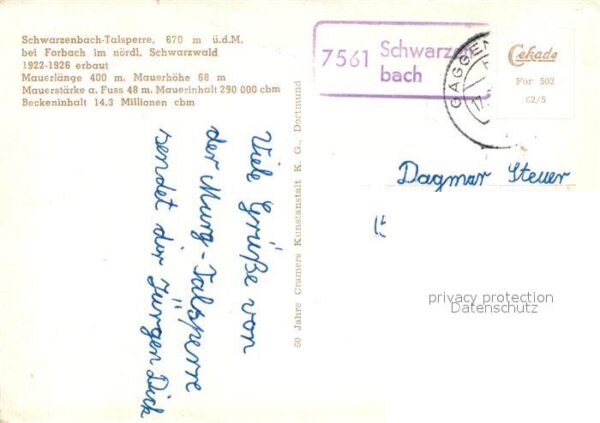 Schwarzenbach-Talsperre, 670 m ü.d.M.
bei Forbach im nördl. Schwarzwald
1922-1926 erbaut
Mauerlänge 400 m. Mauerhöhe 68 m
Mauerstärke a. Fuss 48 m. Mauerinhalt 290 000 cbm
Beckeninhalt 14,3 Millionen cbm
7561 Schwarzen
bach
GAGGEN
17.
Cekade
For 503
62/5
60 Jahre Cramers Kunstanstalt K. G., Dortmund
Viele Grüße von
der Murg-Talsperre
sendet dir Jürgen Dick
Dagmar Steuer
privacy protection
Datenschutz